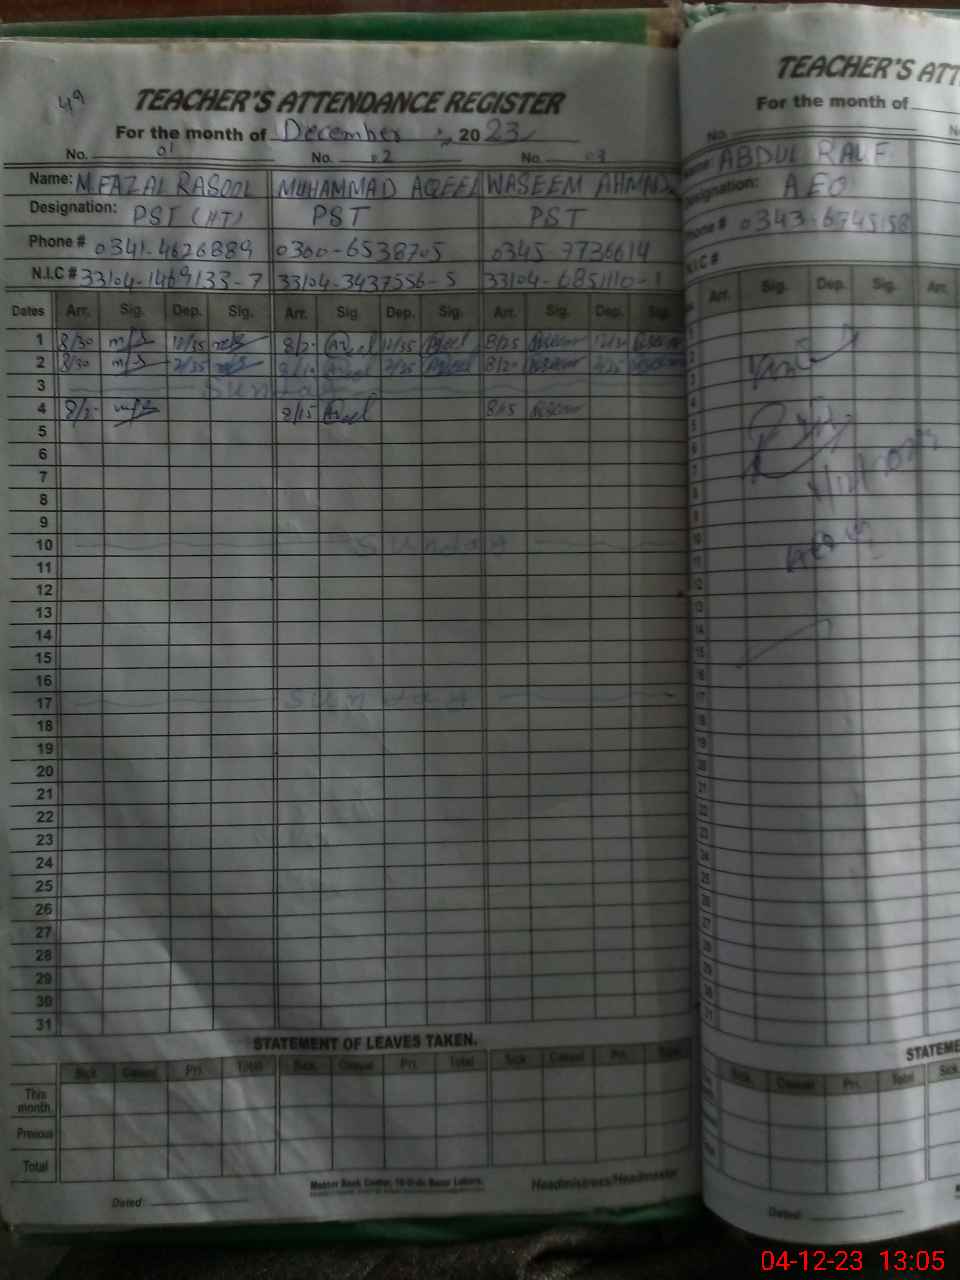 49
TEACHER'S ATTENDANCE REGISTER
For the month of December 2023
No. 01 No. 02 No. 03
Name: M.FAZAL RASOOL MUHAMMAD AQEEL WASEEM AHMAD
Designation: PST (HT) PST PST
Phone # 0341-4626889 0300-6538705 0345 7736614
N.I.C # 33104-1469133-7 33104-3437556-5 33104-6851110-1
Dates Arr. Sig. Dep. Sig. Arr. Sig. Dep. Sig. Arr. Sig. Dep. Sig.
1 8/30 12/35 Aqeel 12/35 Aqeel 8/25
2 8/30 2/35 Aqeel 2/35 Aqeel
3 Sunday
4 8/15 Aqeel 8/15
5
6
7
8
9
10 Sunday
11
12
13
14
15
16
17 Sunday
18
19
20
21
22
23
24
25
26
27
28
29
30
31
STATEMENT OF LEAVES TAKEN.
Sick. Casual Pri. Total Sick. Casual Pri. Total Sick. Casual Pri. Total
This month.
Previous
Total
Dated: Headmistress/Headmaster
TEACHER'S ATT
For the month of
No.
Name: ABDUL RAUF
Designation: AEO
Phone # 0343-6745158
N.I.C #
Arr. Sig. Dep. Sig. Arr.
STATEME
Sick. Casual Pri. Total Sick.
Dated:
04-12-23 13:05